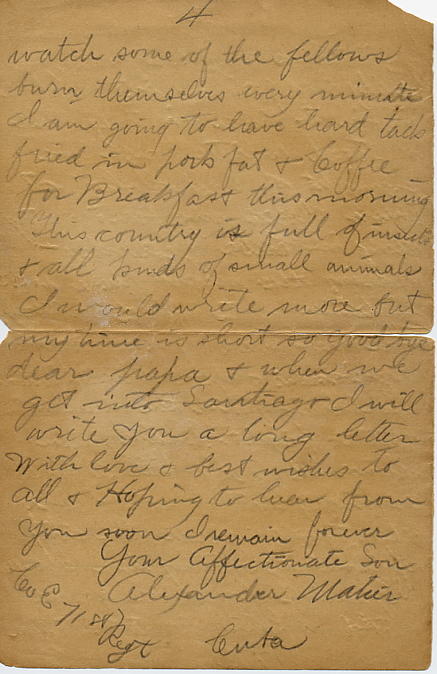 4
watch some of the fellows
burn themselves every minute
I am going to have hard tack
fried in pork fat & Coffee
for Breakfast this morning
This country is full of insects
& all kinds of small animals
I would write more but
my time is short so good bye
dear papa & when we
get into Santiago I will
write you a long letter
With love & best wishes to
all & Hoping to hear from
you soon I remain forever
Your Affectionate Son
Alexander
Co E 71st
Regt Cuba